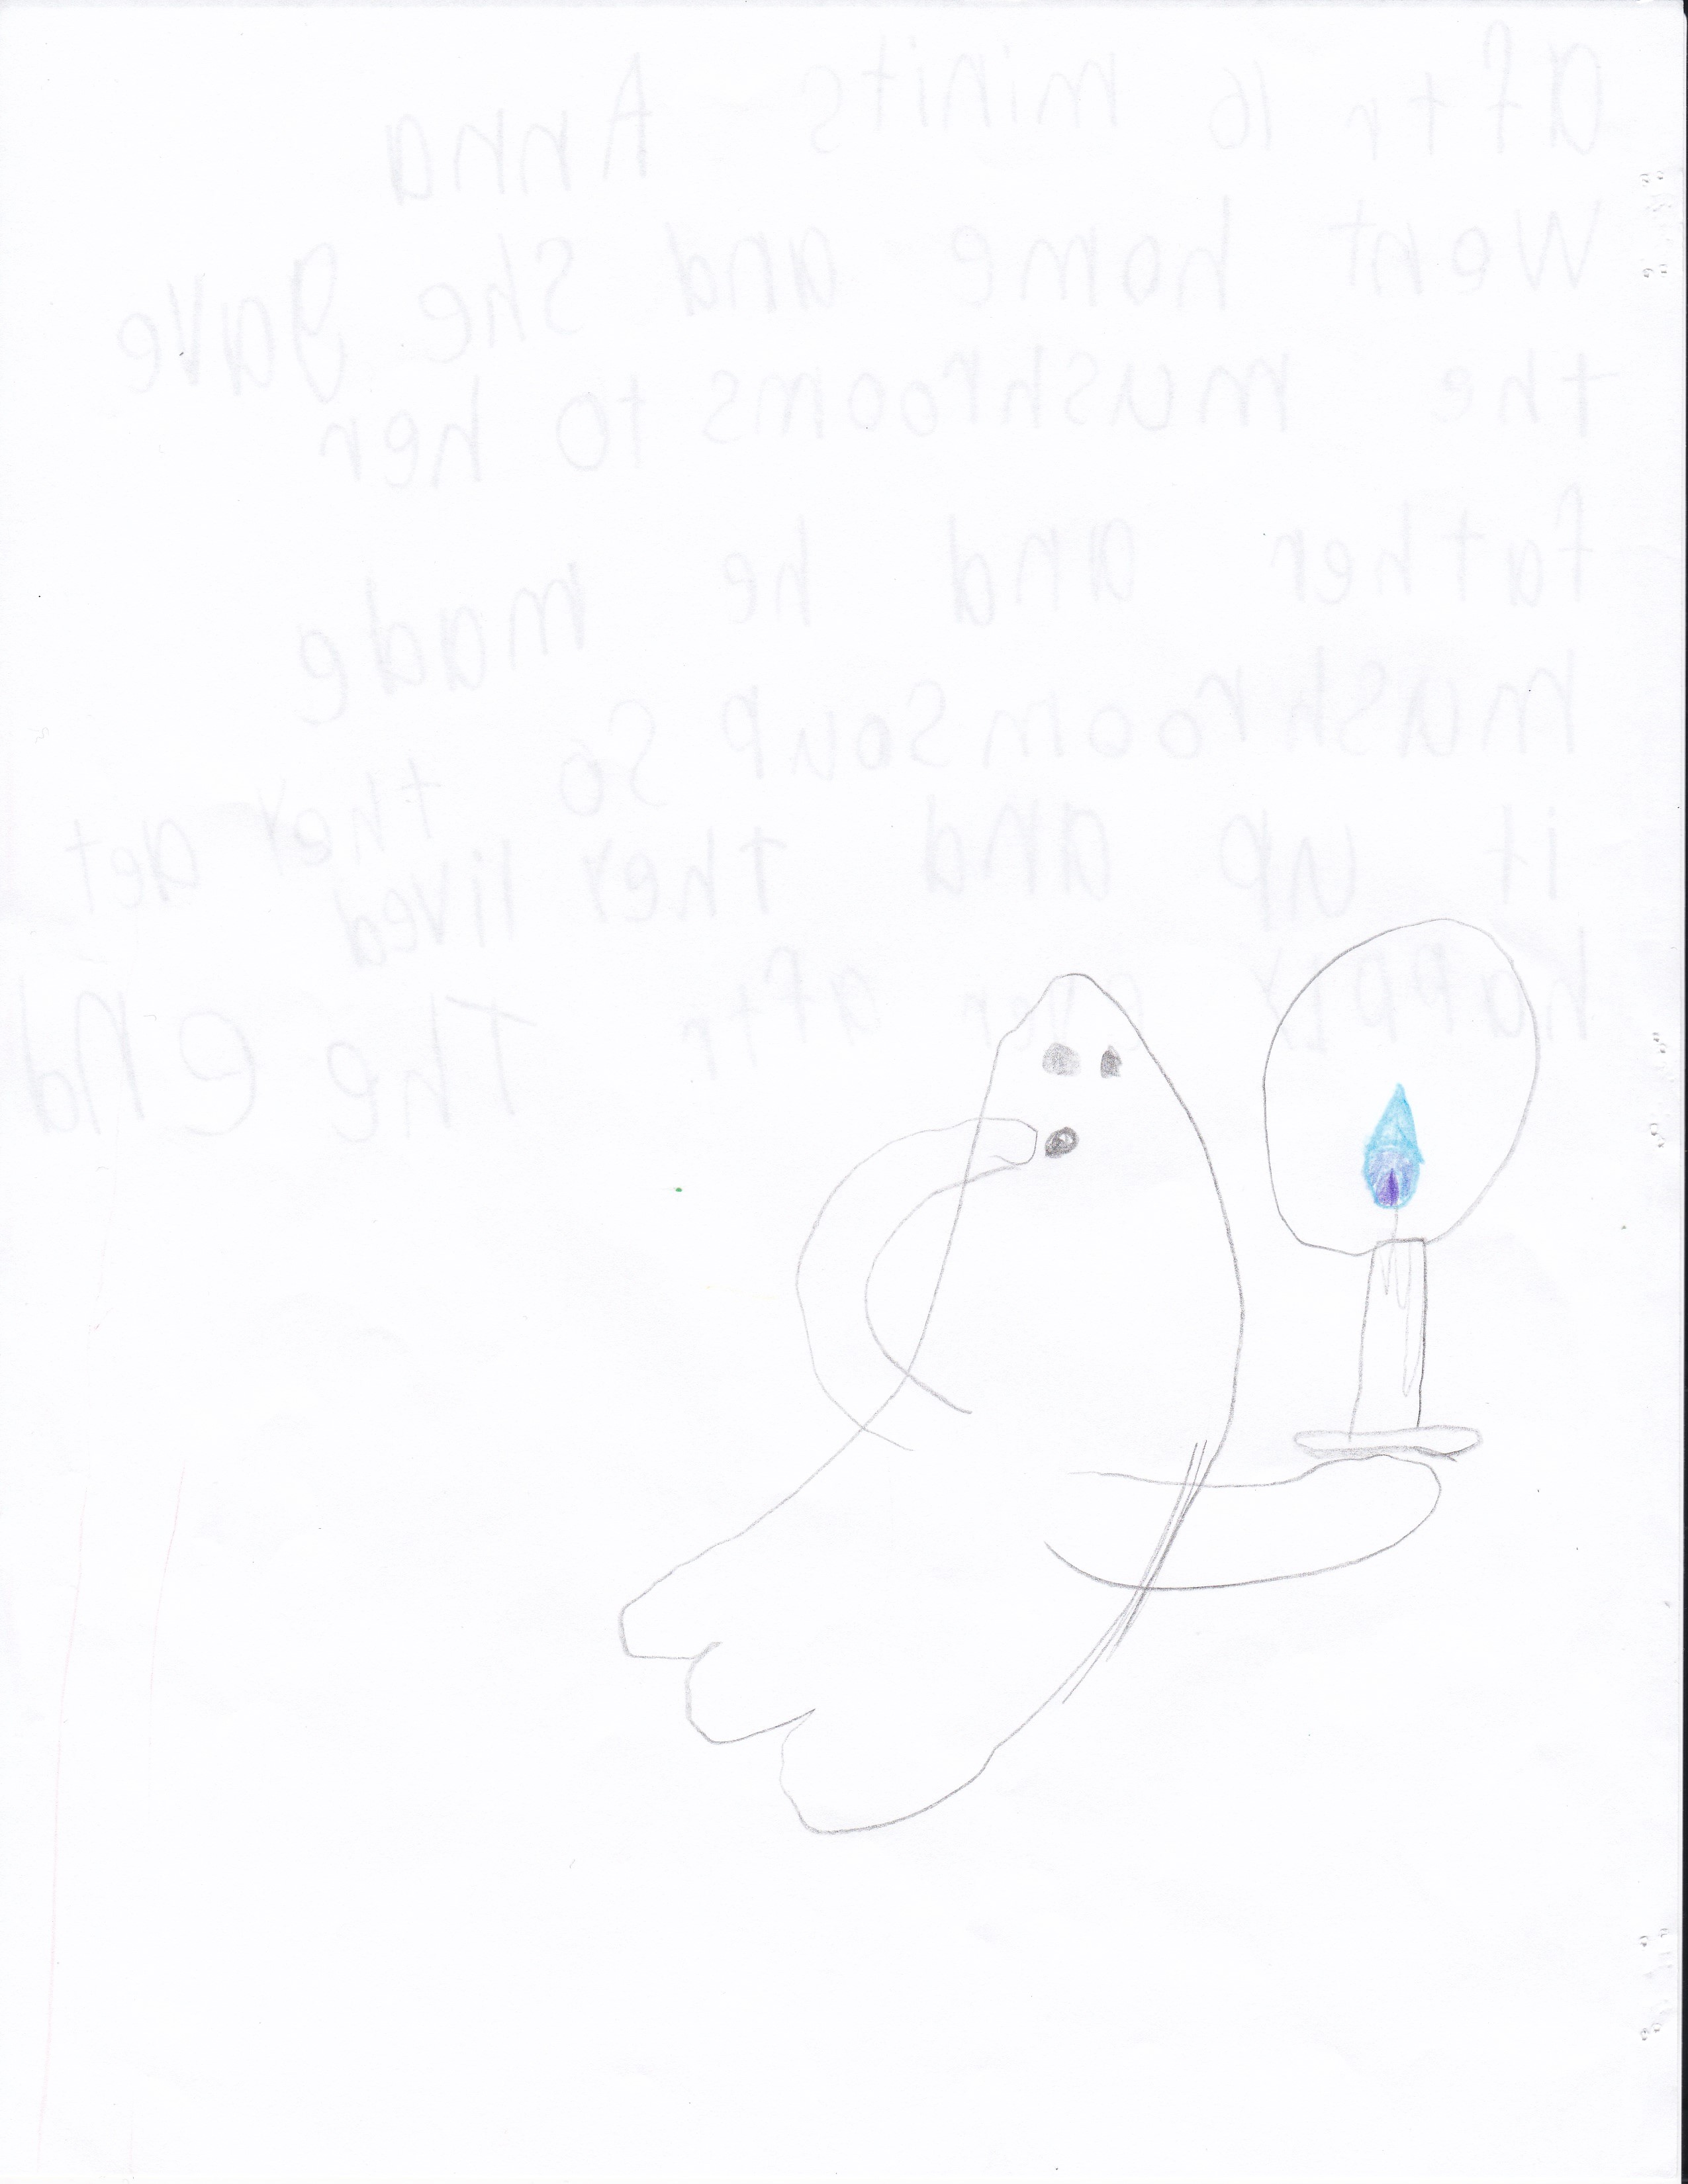 aftr 16 minits Anna
went home and she gave
the mushrooms to her
father and he made
mushroom soup so they aet
it up and they lived
happily ever aftr The end